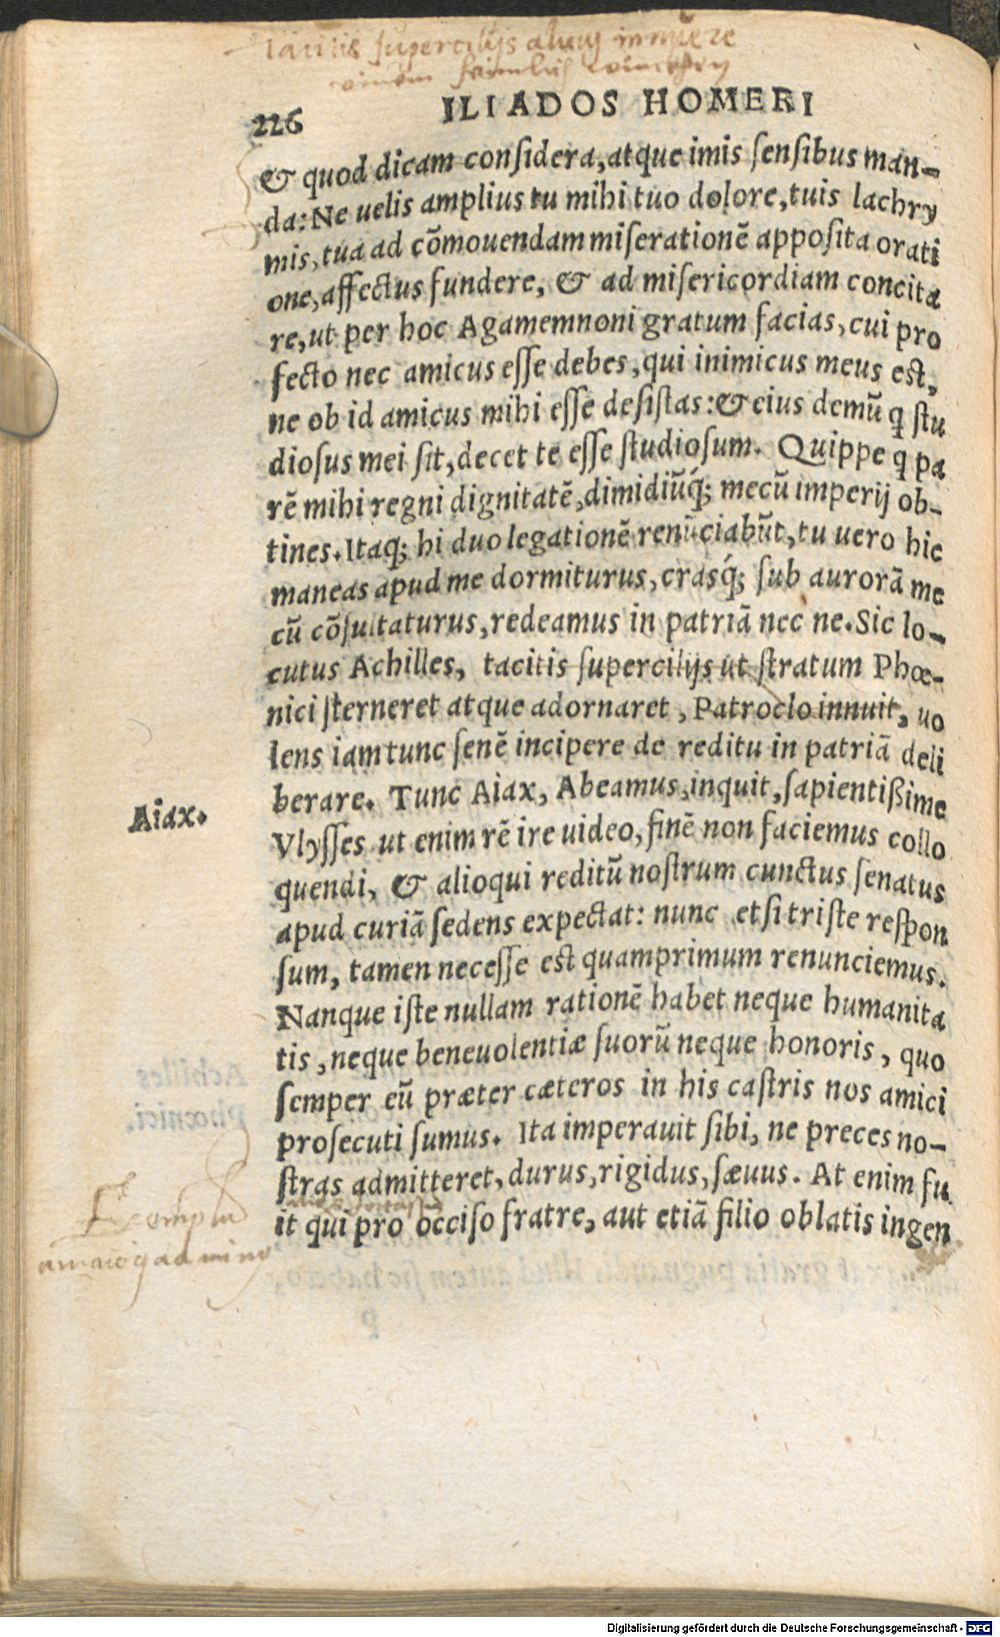 tacitis supercilijs aliuij innuere
226
ILIADOS HOMERI
& quod dicam considera, atque imis sensibus man-
da: Ne uelis amplius tu mihi tuo dolore, tuis lachry
mis, tua ad cõmouendam miserationẽ apposita orati
one, affectus fundere, & ad misericordiam concita
re, ut per hoc Agamemnoni gratum facias, cui pro
fecto nec amicus esse debes, qui inimicus meus est,
ne ob id amicus mihi esse desistas: & eius demũ q̃ stu
diosus mei sit, decet te esse studiosum. Quippe q̃ pa
rẽ mihi regni dignitatẽ, dimidiũq́; mecũ imperij ob-
tines. Itaq; hi duo legationẽ renũciabũt, tu uero hic
maneas apud me dormiturus, crasq́; sub aurorã me
cũ cõsultaturus, redeamus in patriã nec ne. Sic lo-
cutus Achilles, tacitis supercilijs ut stratum Phœ-
nici sterneret atque adornaret, Patroclo innuit, uo
lens iam tunc senẽ incipere de reditu in patriã deli
berare. Tunc Aiax, Abeamus, inquit, sapientißime
Aiax.
Vlysses ut enim rẽ ire uideo, finẽ non faciemus collo
quendi, & alioqui reditũ nostrum cunctus senatus
apud curiã sedens expectat: nunc etsi triste respon
sum, tamen necesse est quamprimum renunciemus.
Nanque iste nullam rationẽ habet neque humanita
tis, neque beneuolentiæ suorũ neque honoris, quo
semper eũ præter cæteros in his castris nos amici
prosecuti sumus. Ita imperauit sibi, ne preces no-
stras admitteret, durus, rigidus, sæuus. At enim fu
it qui pro occiso fratre, aut etiã filio oblatis ingen
Exempla
Digitalisierung gefördert durch die Deutsche Forschungsgemeinschaft - DFG